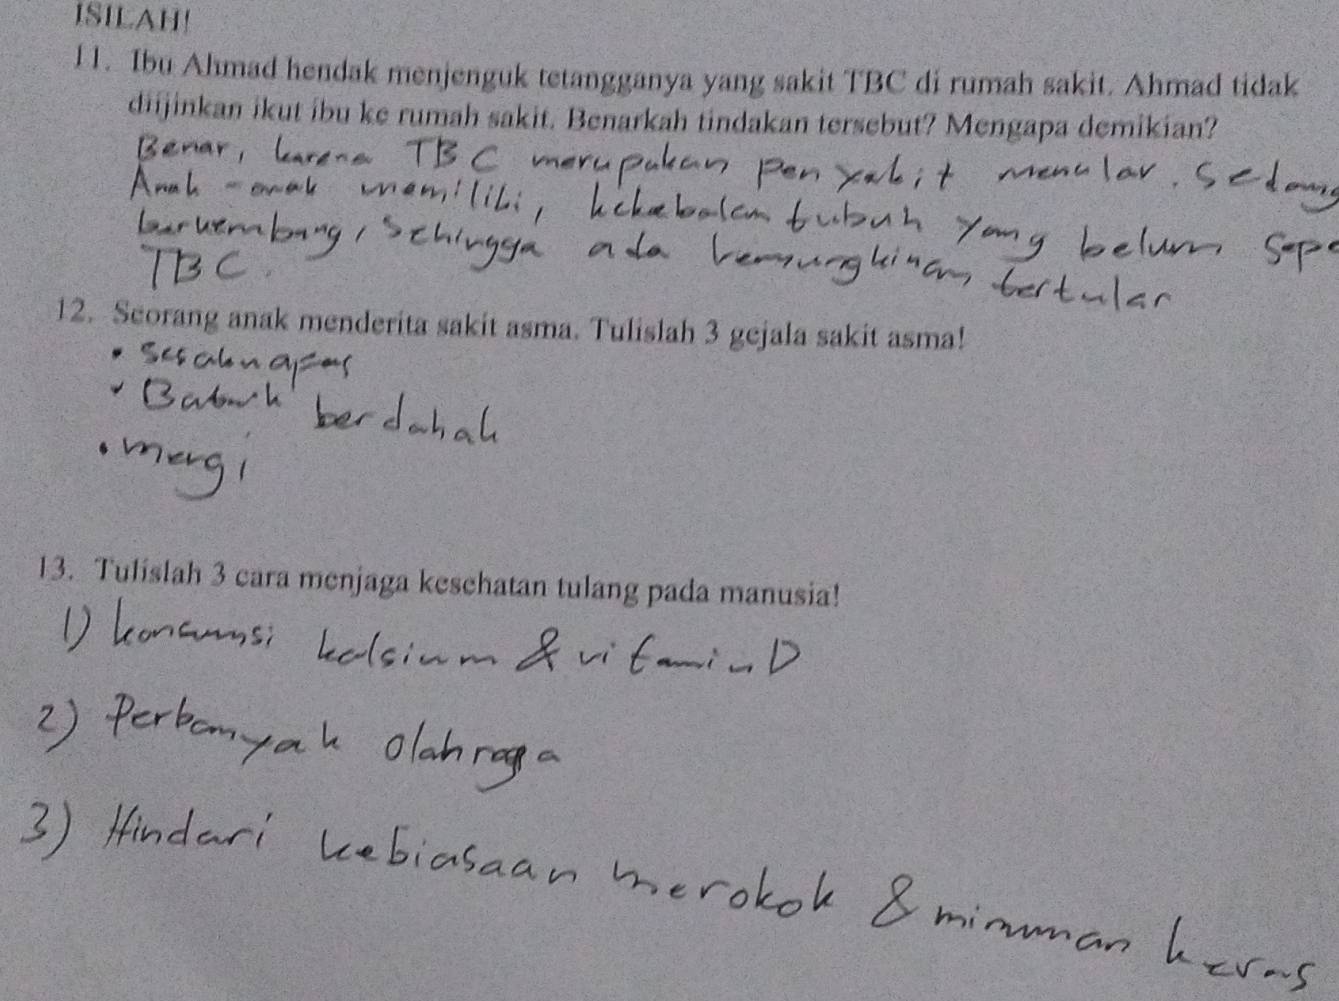 ISILAH!
11. Ibu Ahmad hendak menjenguk tetangganya yang sakit TBC di rumah sakit. Ahmad tidak
diijinkan ikut ibu ke rumah sakit. Benarkah tindakan tersebut? Mengapa demikian?
Benar, karena TBC merupakan penyakit menular. Sedang
Anak-anak memiliki, kekebalan tubuh yang belum
berkembang, sehingga ada kemungkinan tertular
TBC.
12. Seorang anak menderita sakit asma. Tulislah 3 gejala sakit asma!
• Sesak napas
• Batuk berdahak
• mengi
13. Tulislah 3 cara menjaga kesehatan tulang pada manusia!
1) konsumsi kalsium & vitamin D
2) Perbanyak olahraga
3) Hindari kebiasaan merokok & minuman keras